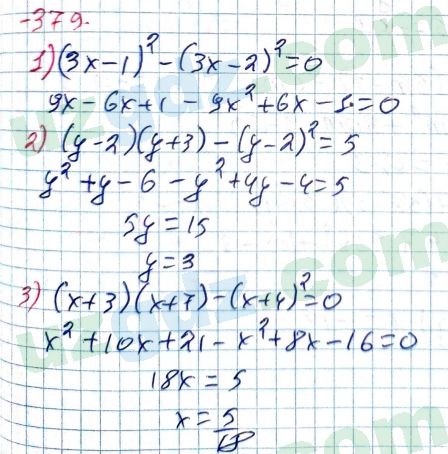 -379.
1) (3x-1)² - (3x-2)² = 0
9x - 6x + 1 - 9x² + 6x - 1 = 0
2) (y-2)(y+3) - (y-2)² = 5
y² + y - 6 - y² + 4y - 4 = 5
5y = 15
y = 3
3) (x+3)(x+7) - (x+4)² = 0
x² + 10x + 21 - x² + 8x - 16 = 0
18x = 5
x = 5/18
uzgdz.com